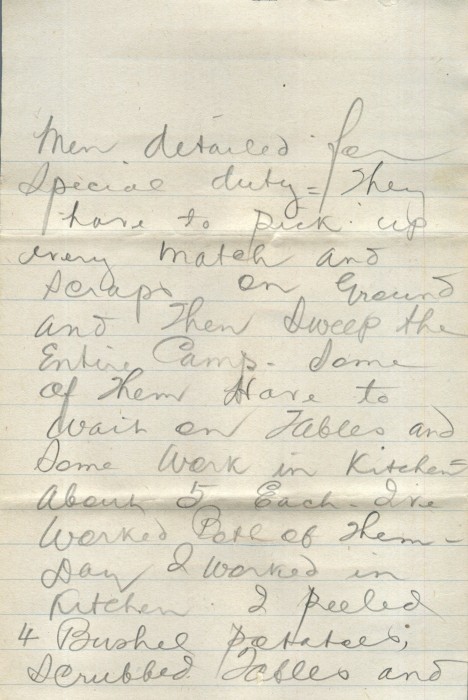 Men detailed for
Special duty = They
have to pick up
every match and
scraps on Ground
and Then Sweep the
Entire Camp - Some
of Them Have to
wait on Tables and
Some Work in Kitchen =
About 5 Each - I've
Worked Both of Them -
Day I worked in
Kitchen I peeled
4 Bushel potatoes;
Scrubbed Tables and